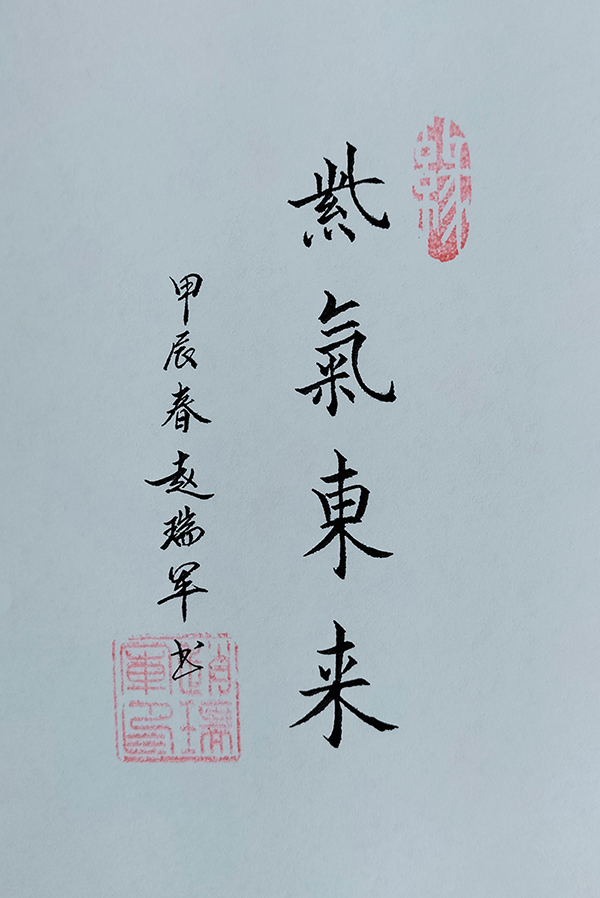 紫氣東来
甲辰春赵瑞军书
趙瑞軍印